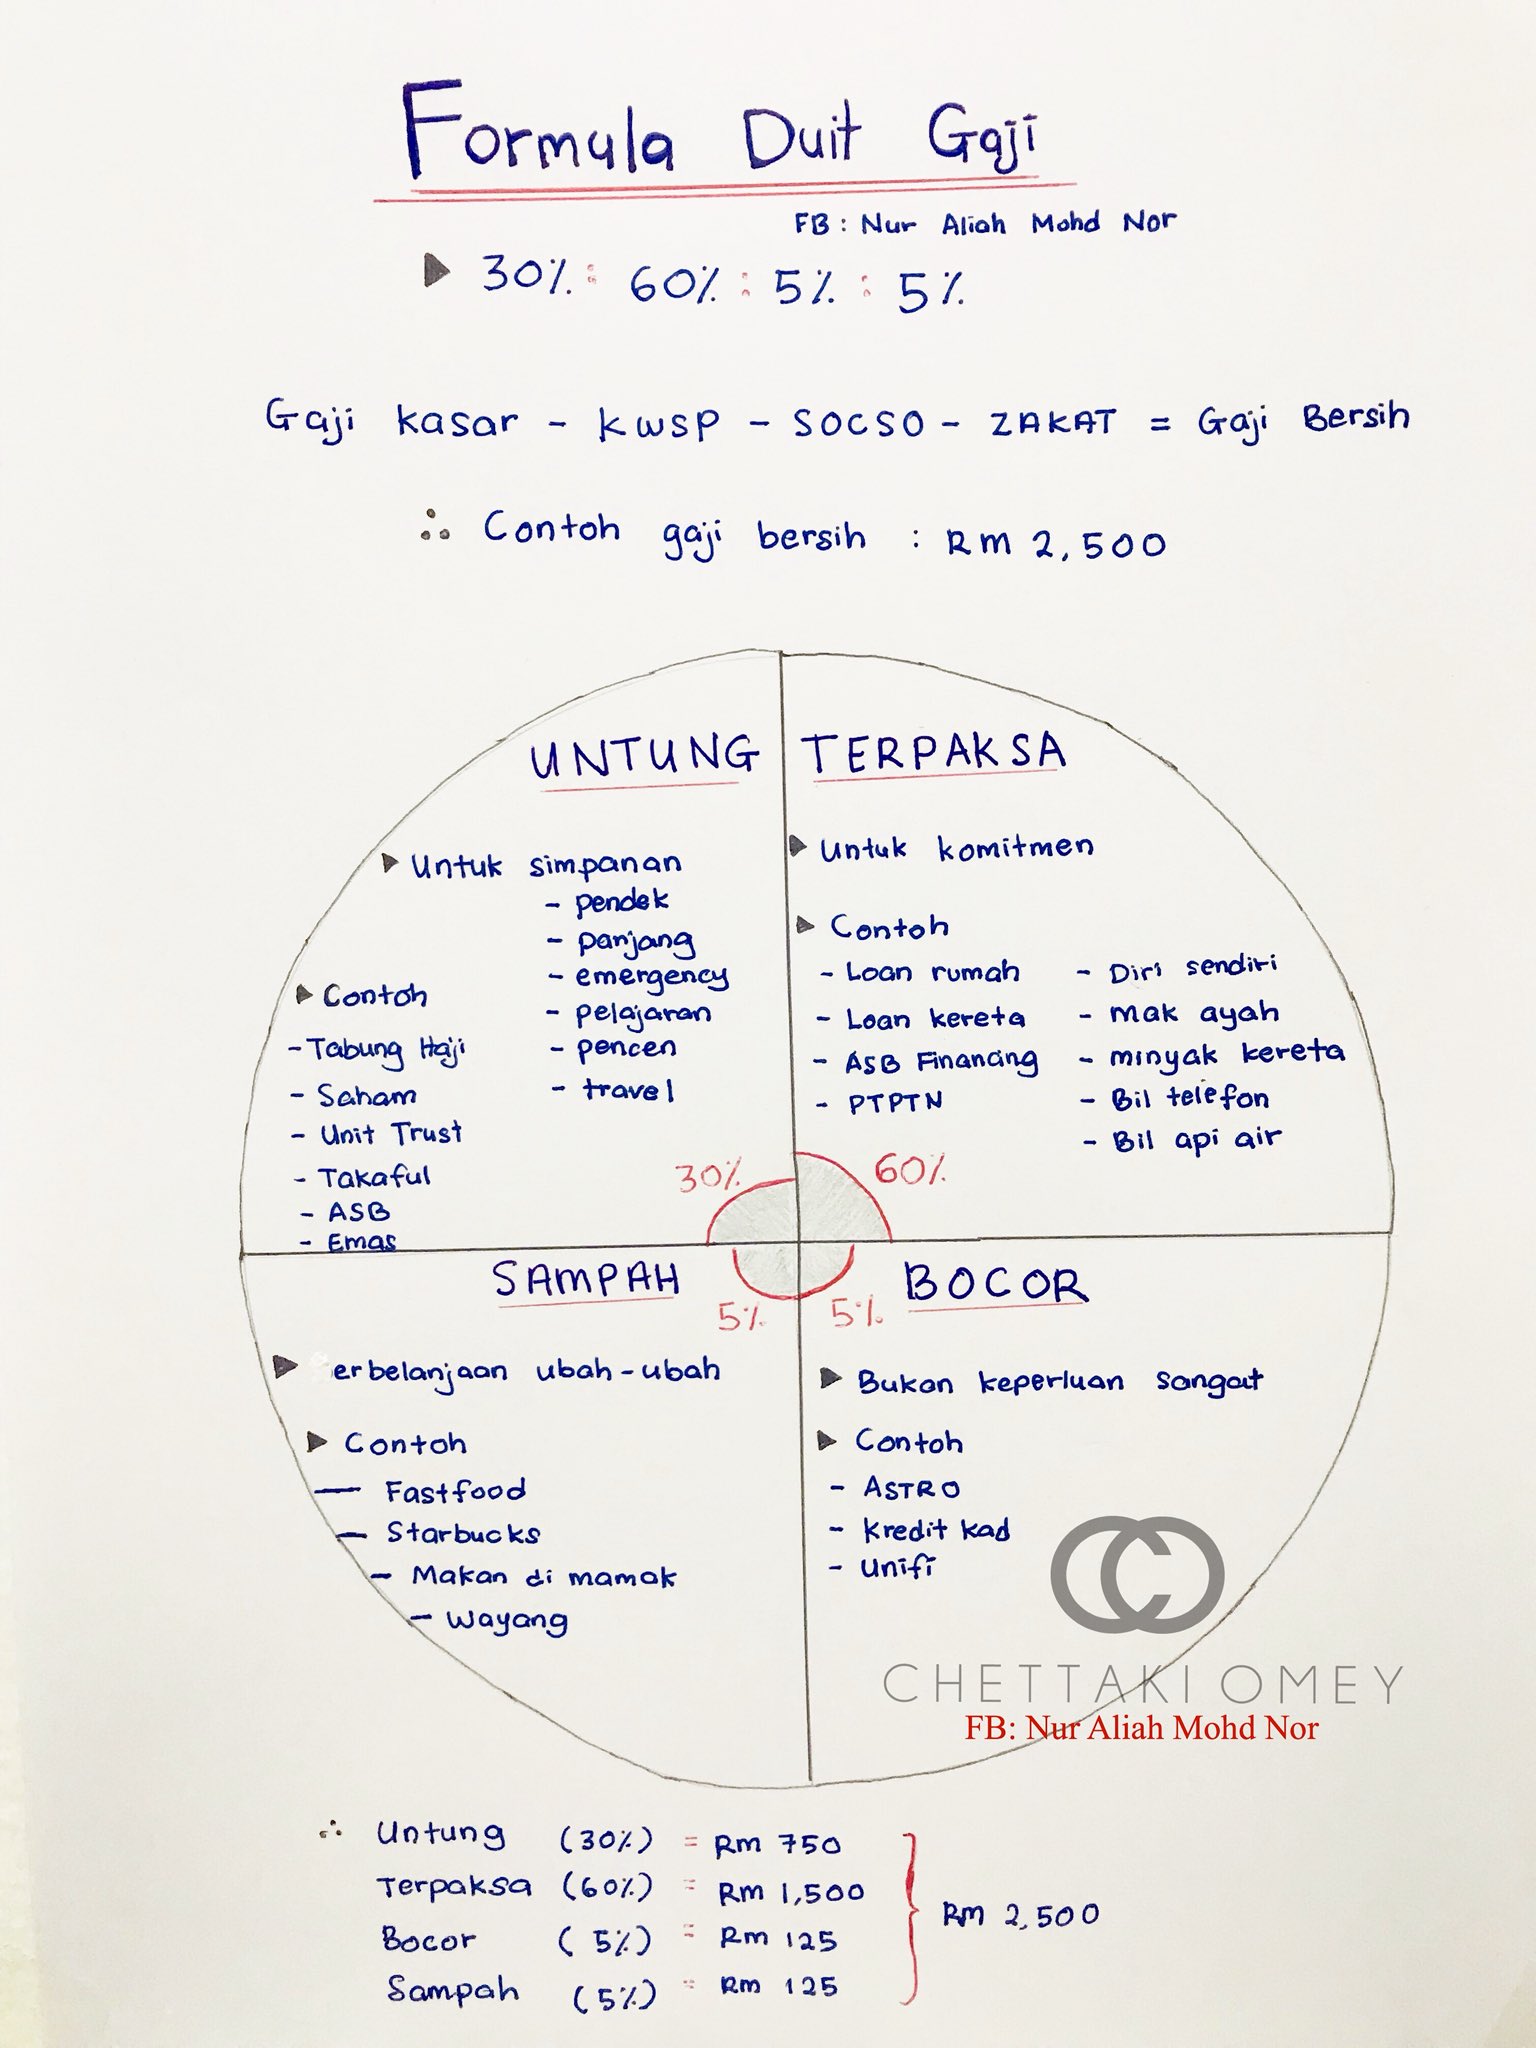 Formula Duit Gaji
FB: Nur Aliah Mohd Nor
30% : 60% : 5% : 5%
Gaji kasar - KWSP - SOCSO - ZAKAT = Gaji Bersih
∴ Contoh gaji bersih : RM 2,500
UNTUNG
Untuk simpanan
- pendek
- panjang
- emergency
- pelajaran
- pencen
- travel
Contoh
- Tabung Haji
- Saham
- Unit Trust
- Takaful
- ASB
- Emas
30%
TERPAKSA
Untuk komitmen
Contoh
- Loan rumah
- Loan kereta
- ASB Financing
- PTPTN
- Diri sendiri
- mak ayah
- minyak kereta
- Bil telefon
- Bil api air
60%
SAMPAH
5%
erbelanjaan ubah-ubah
Contoh
- Fastfood
- Starbucks
- Makan di mamak
- Wayang
BOCOR
5%
Bukan keperluan sangat
Contoh
- ASTRO
- Kredit kad
- Unifi
CHETTAKI OMEY
FB: Nur Aliah Mohd Nor
∴ Untung (30%) = RM 750
Terpaksa (60%) = RM 1,500
Bocor (5%) = RM 125
Sampah (5%) = RM 125
RM 2,500